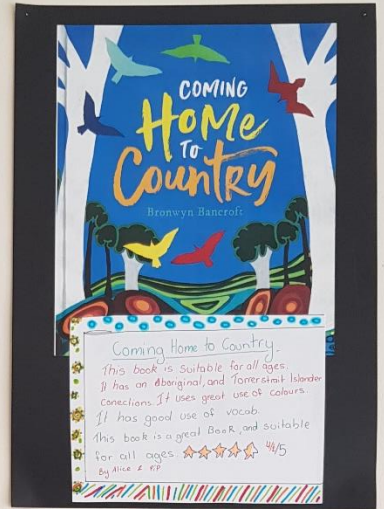 COMING
HOME
TO
COUNTRY
Bronwyn Bancroft
Coming Home to Country.
This book is suitable for all ages.
It has an Aboriginal, and Torrerstrait Islander
conections. It uses great use of colours.
It has good use of vocab.
This book is a great Book, and suitable
for all ages. 4/5
By Alice &